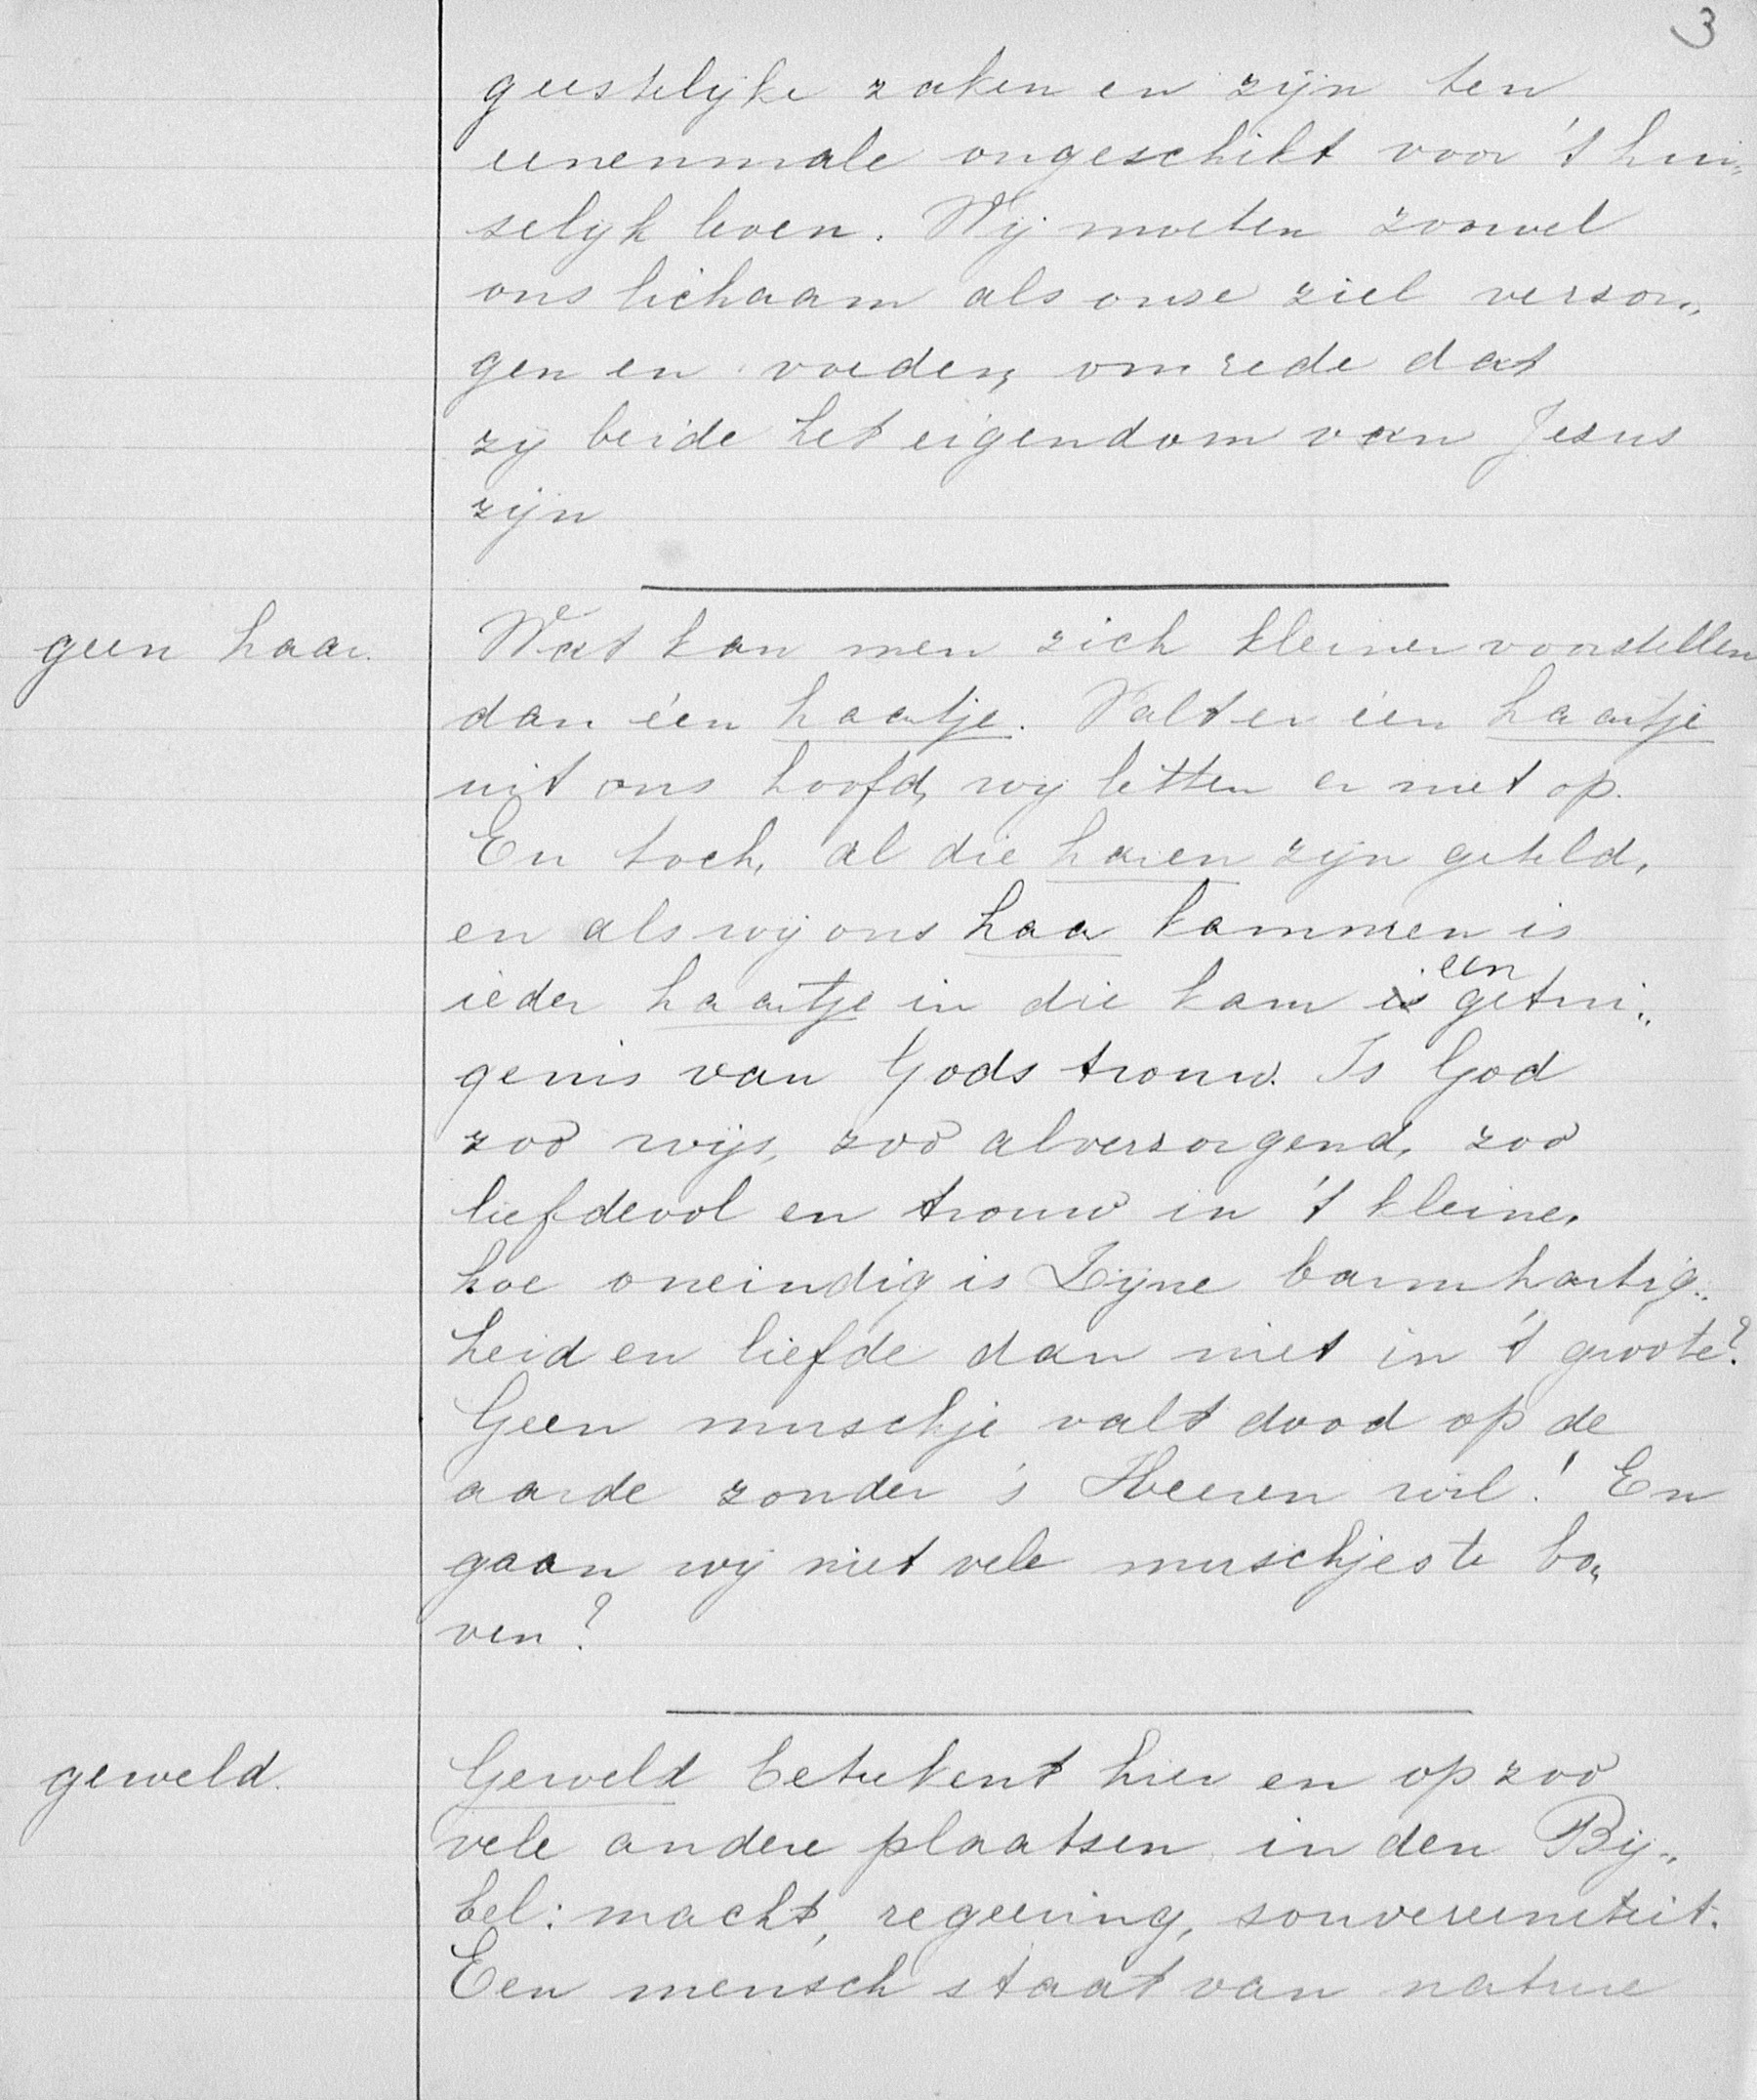 3
geestelijke zaken en zijn ten
eenenmale ongeschikt voor 't hui„
selijk leven. Wij moeten zoowel
ons lichaam als onse ziel verson„
gen en voeden, om rede dat
zij beide het eigendom van Jesus
zijn
geen haar.
Wat kan men zich kleiner voorstellen
dan één haartje. Valt er één haartje
uit ons hoofd, wij letten er niet op.
En toch, al die haren zijn geteld,
en als wij ons haar kammen is
ieder haartje in die kam een getui„
genis van Gods trouw. Is God
zoo wijs, zoo alversorgend, zoo
liefdevol en trouw in 't kleine,
hoe oneindig is Zijne barmhartig„
heid en liefde dan niet in 't groote?
Geen muschje valt dood op de
aarde zonder 's Heeren wil! En
gaan wij niet vele muschjes te bo„
ven?
geweld.
Geweld beteekent hier en op zoo
vele andere plaatsen in den Bij„
bel: macht, regeering, souvereiniteit.
Een mensch staat van nature